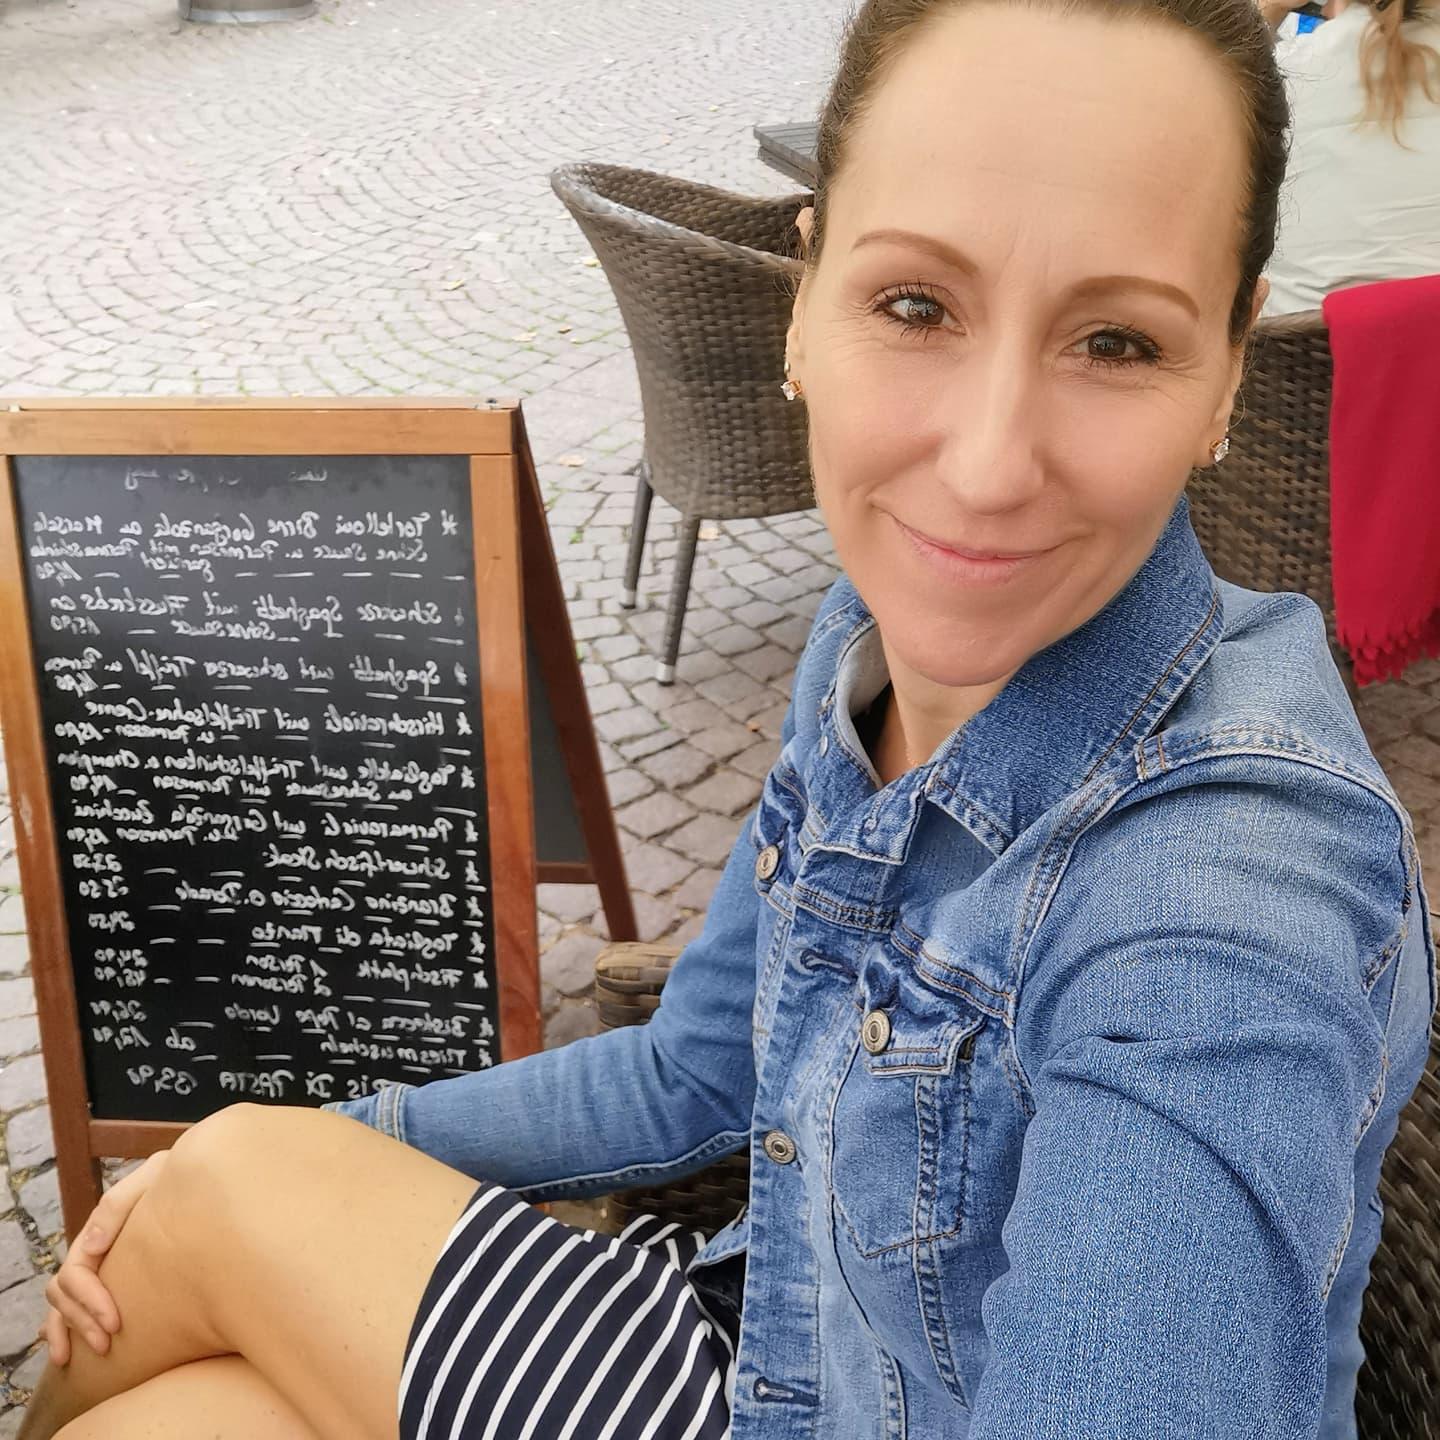 * Tortelloni Birne Gorgonzola an Marsala
Sahne Sauce u. Parmesan mit Parmaschinken
* Schwarze Spaghetti mit Flusskrebs an
Sahnesauce 15,90
* Spaghetti mit schwarzer Trüffel u. Parmesan
* Hirschravioli mit Trüffelsahne-Creme
u. Parmesan - 15,90
* Tagliatelle mit Trüffelschinken u. Champion
an Sahnesauce mit Parmesan 14,90
* Panzerotti mit Gorgonzola Zucchini
u. Parmesan 13,90
* Schwertfisch Steak 23,50
* Branzino Cartoccio o. Dorade 25,50
* Tagliata di Manzo 29,50
* Fischplatte 1 Person 24,90
2 Personen 45,90
* Bistecca al Pepe Verde 26,90
* Miesmuscheln ab 14,90
Bis Di PASTA